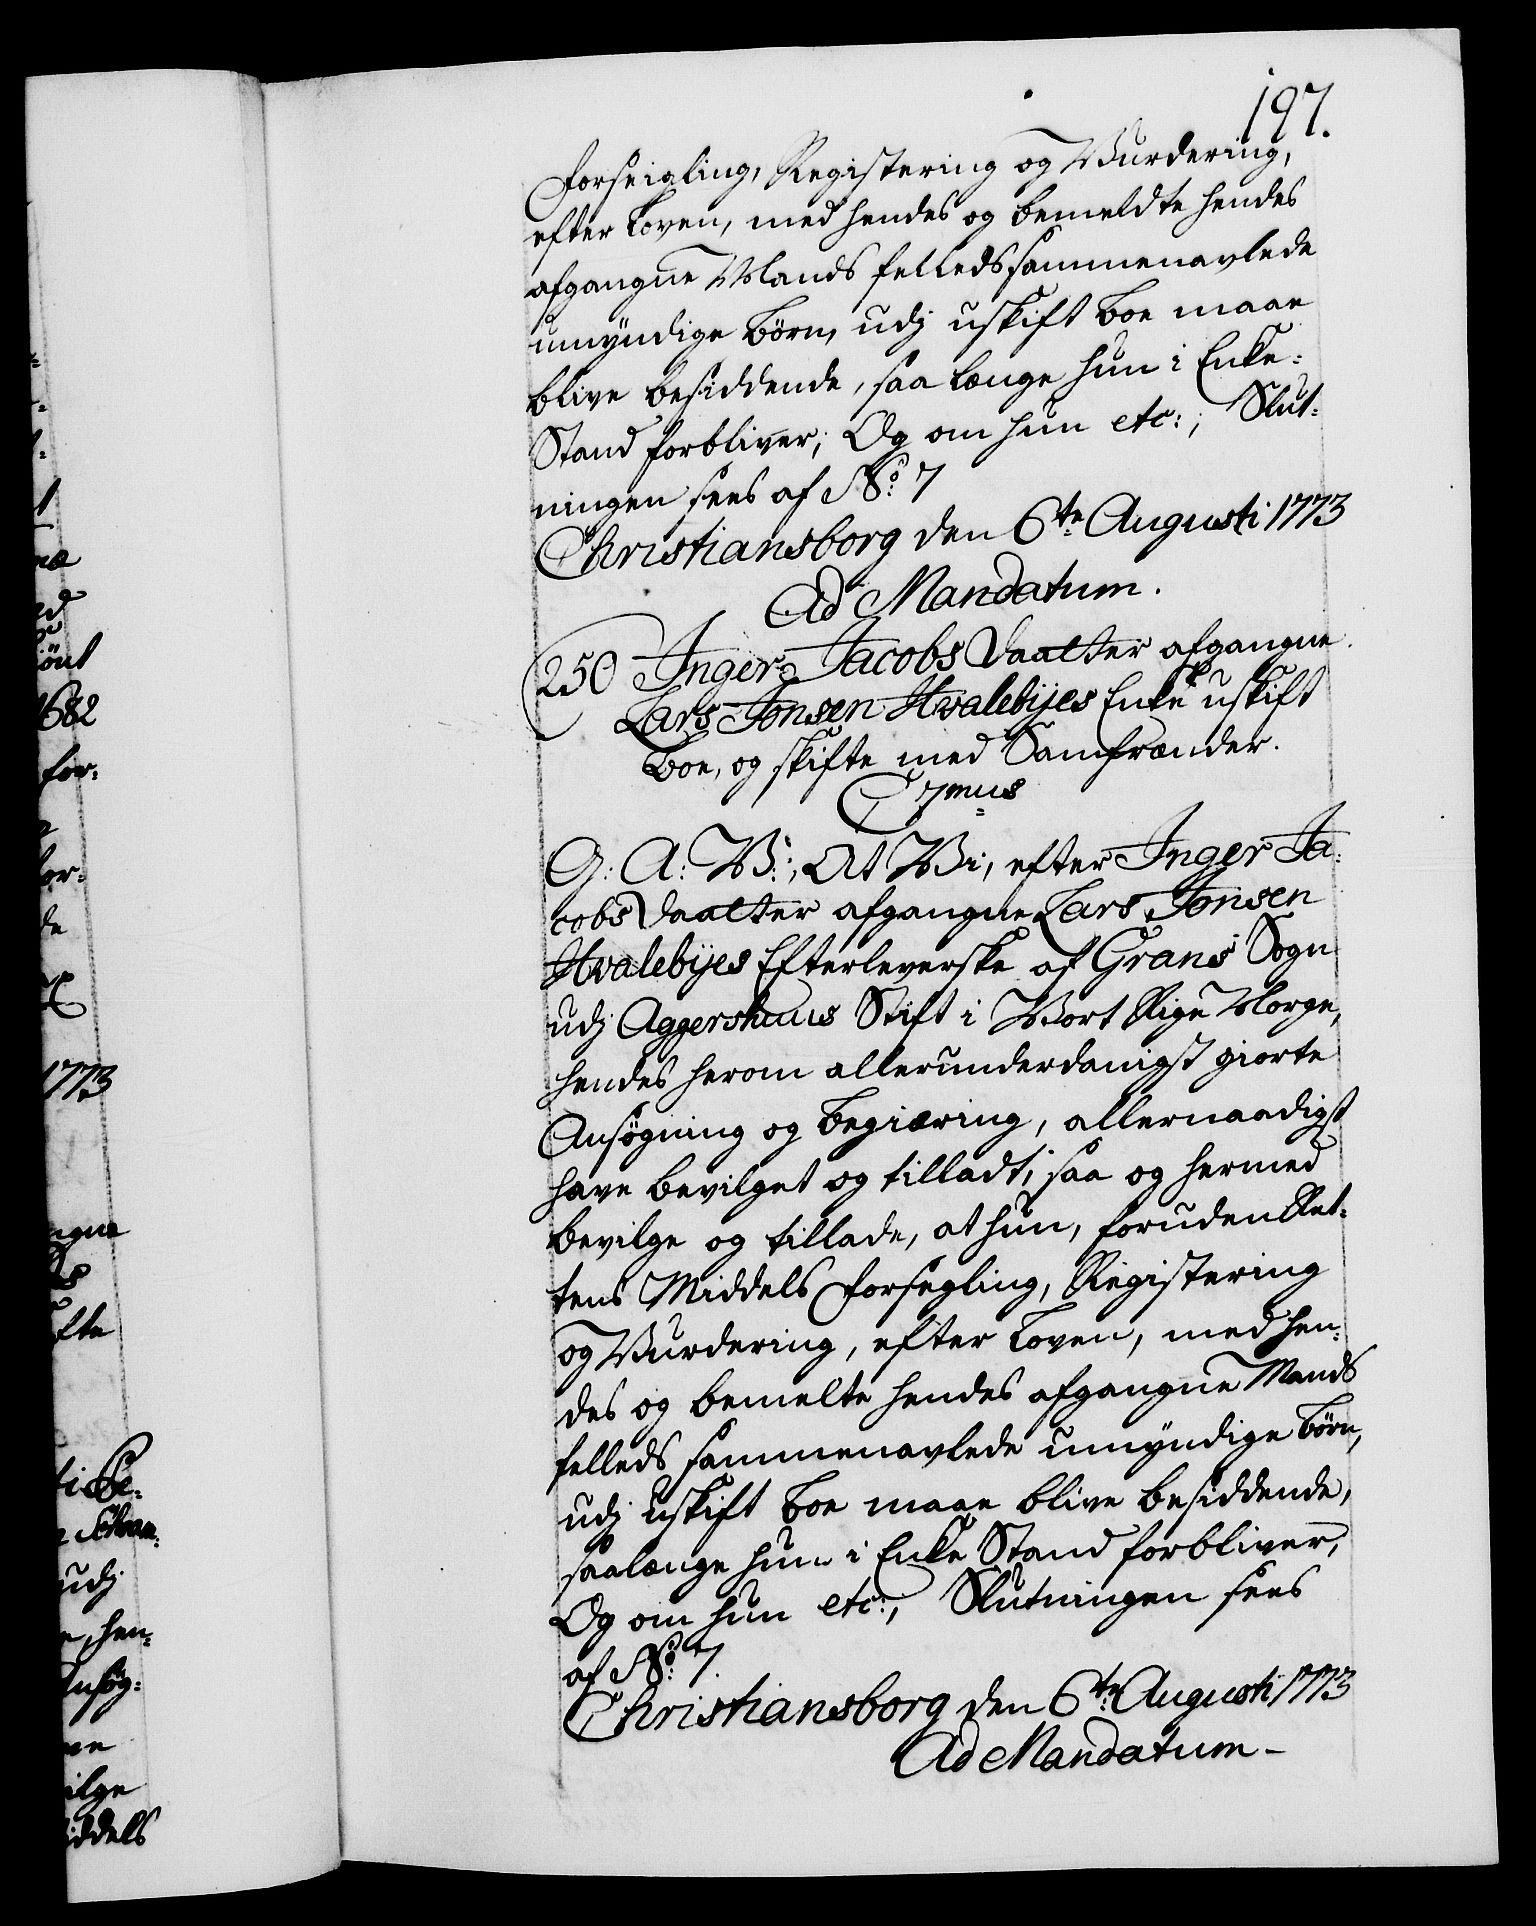 197.
Forseigling, Registering og Vurdering,
efter Loven, med hendes og bemeldte hendes
afgangne Mands felleds sammenavlede
umyndige Börn, udj uskift Boe maae
blive besiddende, saa længe hun i Enke-
Stand forbliver; Og om hun etc:, Slut-
ningen sees af No: 7
Christiansborg den 6te Augusti 1773
Ad Mandatum.
250 Inger Jacobs Daatter afgangne
Lars Jonsen Hvalebÿes Enke uskift
Boe, og skifte med Samfrænder.
C 7mus
G: A: V:, At Vi, efter Inger Ja-
cobs Daatter afgangne Lars Jonsen
Hvalebÿes Efterleverske af Grans Sogn
udj Aggershuus Stift i Vort Rige Norge,
hendes herom allerunderdanigst giorte
Ansögning og Begiæring, allernaadigst
have bevilget og tilladt, saa og hermed
bevilge og tillade, at hun, foruden Ret-
tens Middels Forsegling, Registering
og Vurdering, efter Loven, med hen-
des og bemelte hendes afgangne Mands
felleds sammenavlede umyndige Börn,
udj uskift Boe maae blive besiddende,
saalænge hun i Enke Stand forbliver,
Og om hun etc:, Slutningen sees
af No: 7.
Christiansborg den 6te Augusti 1773
Ad Mandatum-